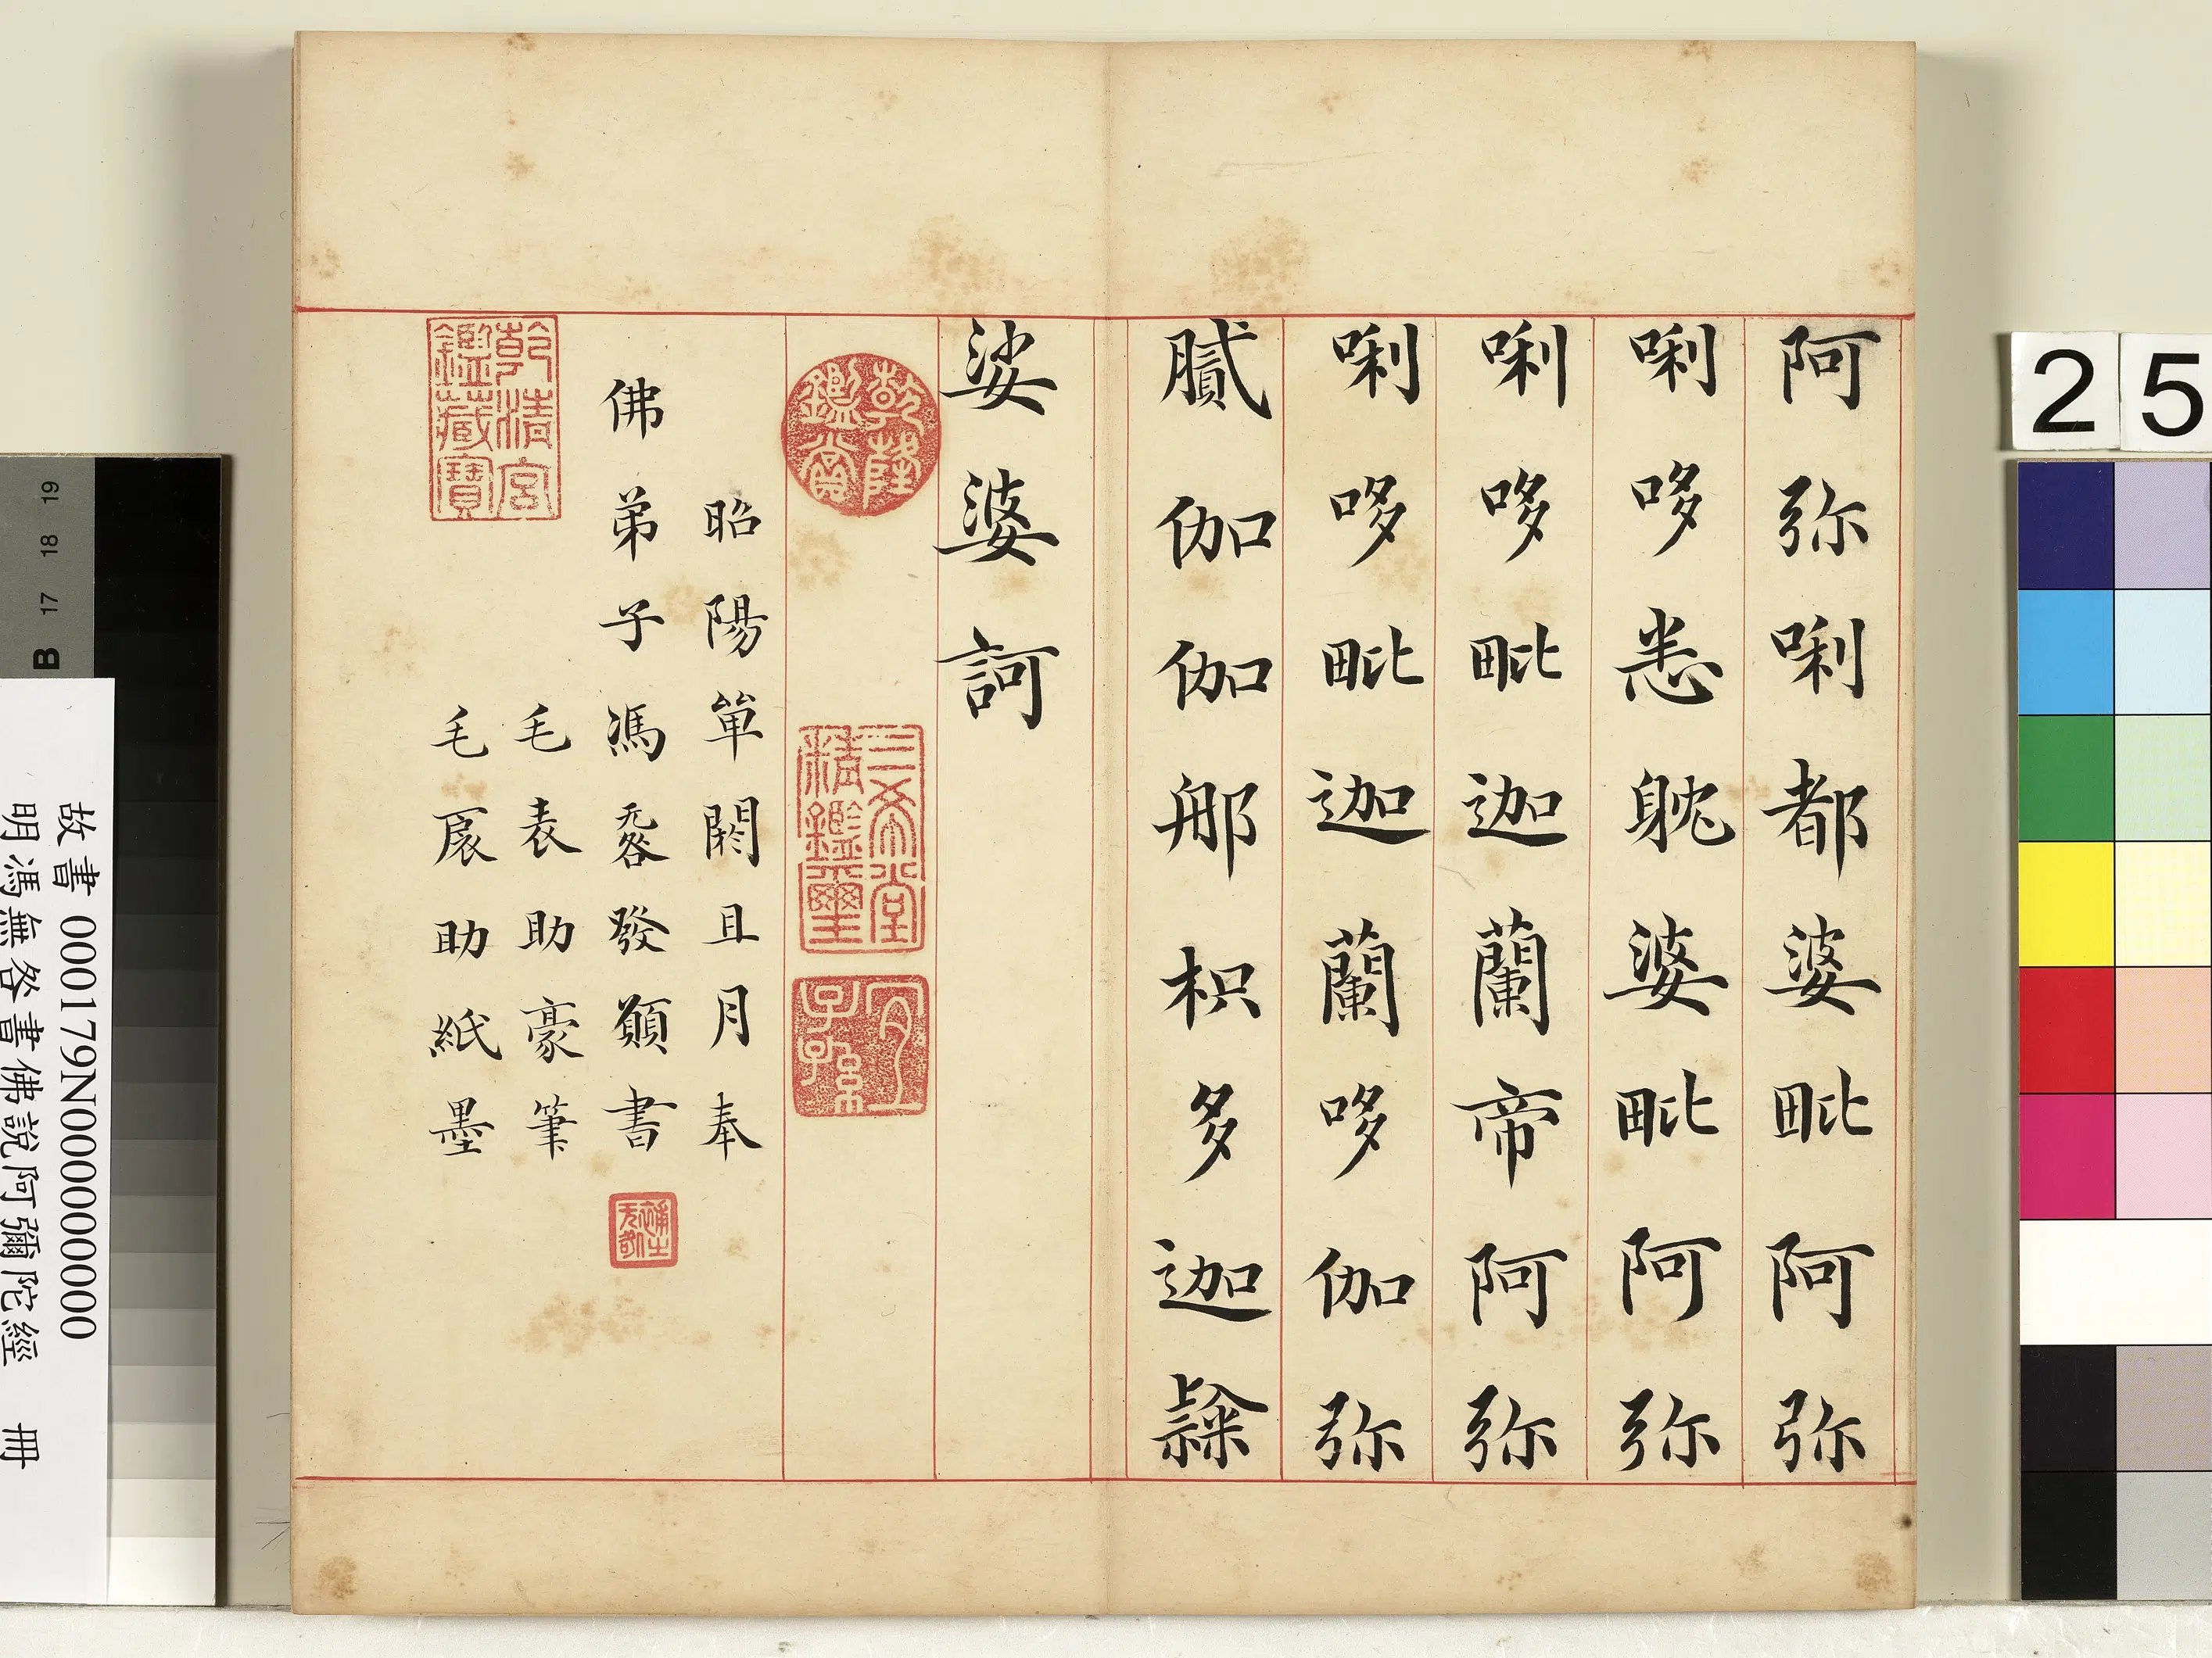 阿弥唎都婆毗阿弥
唎哆悉躭婆毗阿弥
唎哆毗迦蘭帝阿弥
唎哆毗迦蘭哆伽弥
膩伽伽那枳多迦隸
娑婆訶
乾隆鑑賞
三希堂精鑑璽
宜子孫
昭陽單閼且月奉
佛弟子馮无咎發願書
毛表助豪筆
毛扆助紙墨
乾清宮鑑藏寶
25
19
18
17
B
故書 000179N000000000
明馮無咎書佛說阿彌陀經 冊